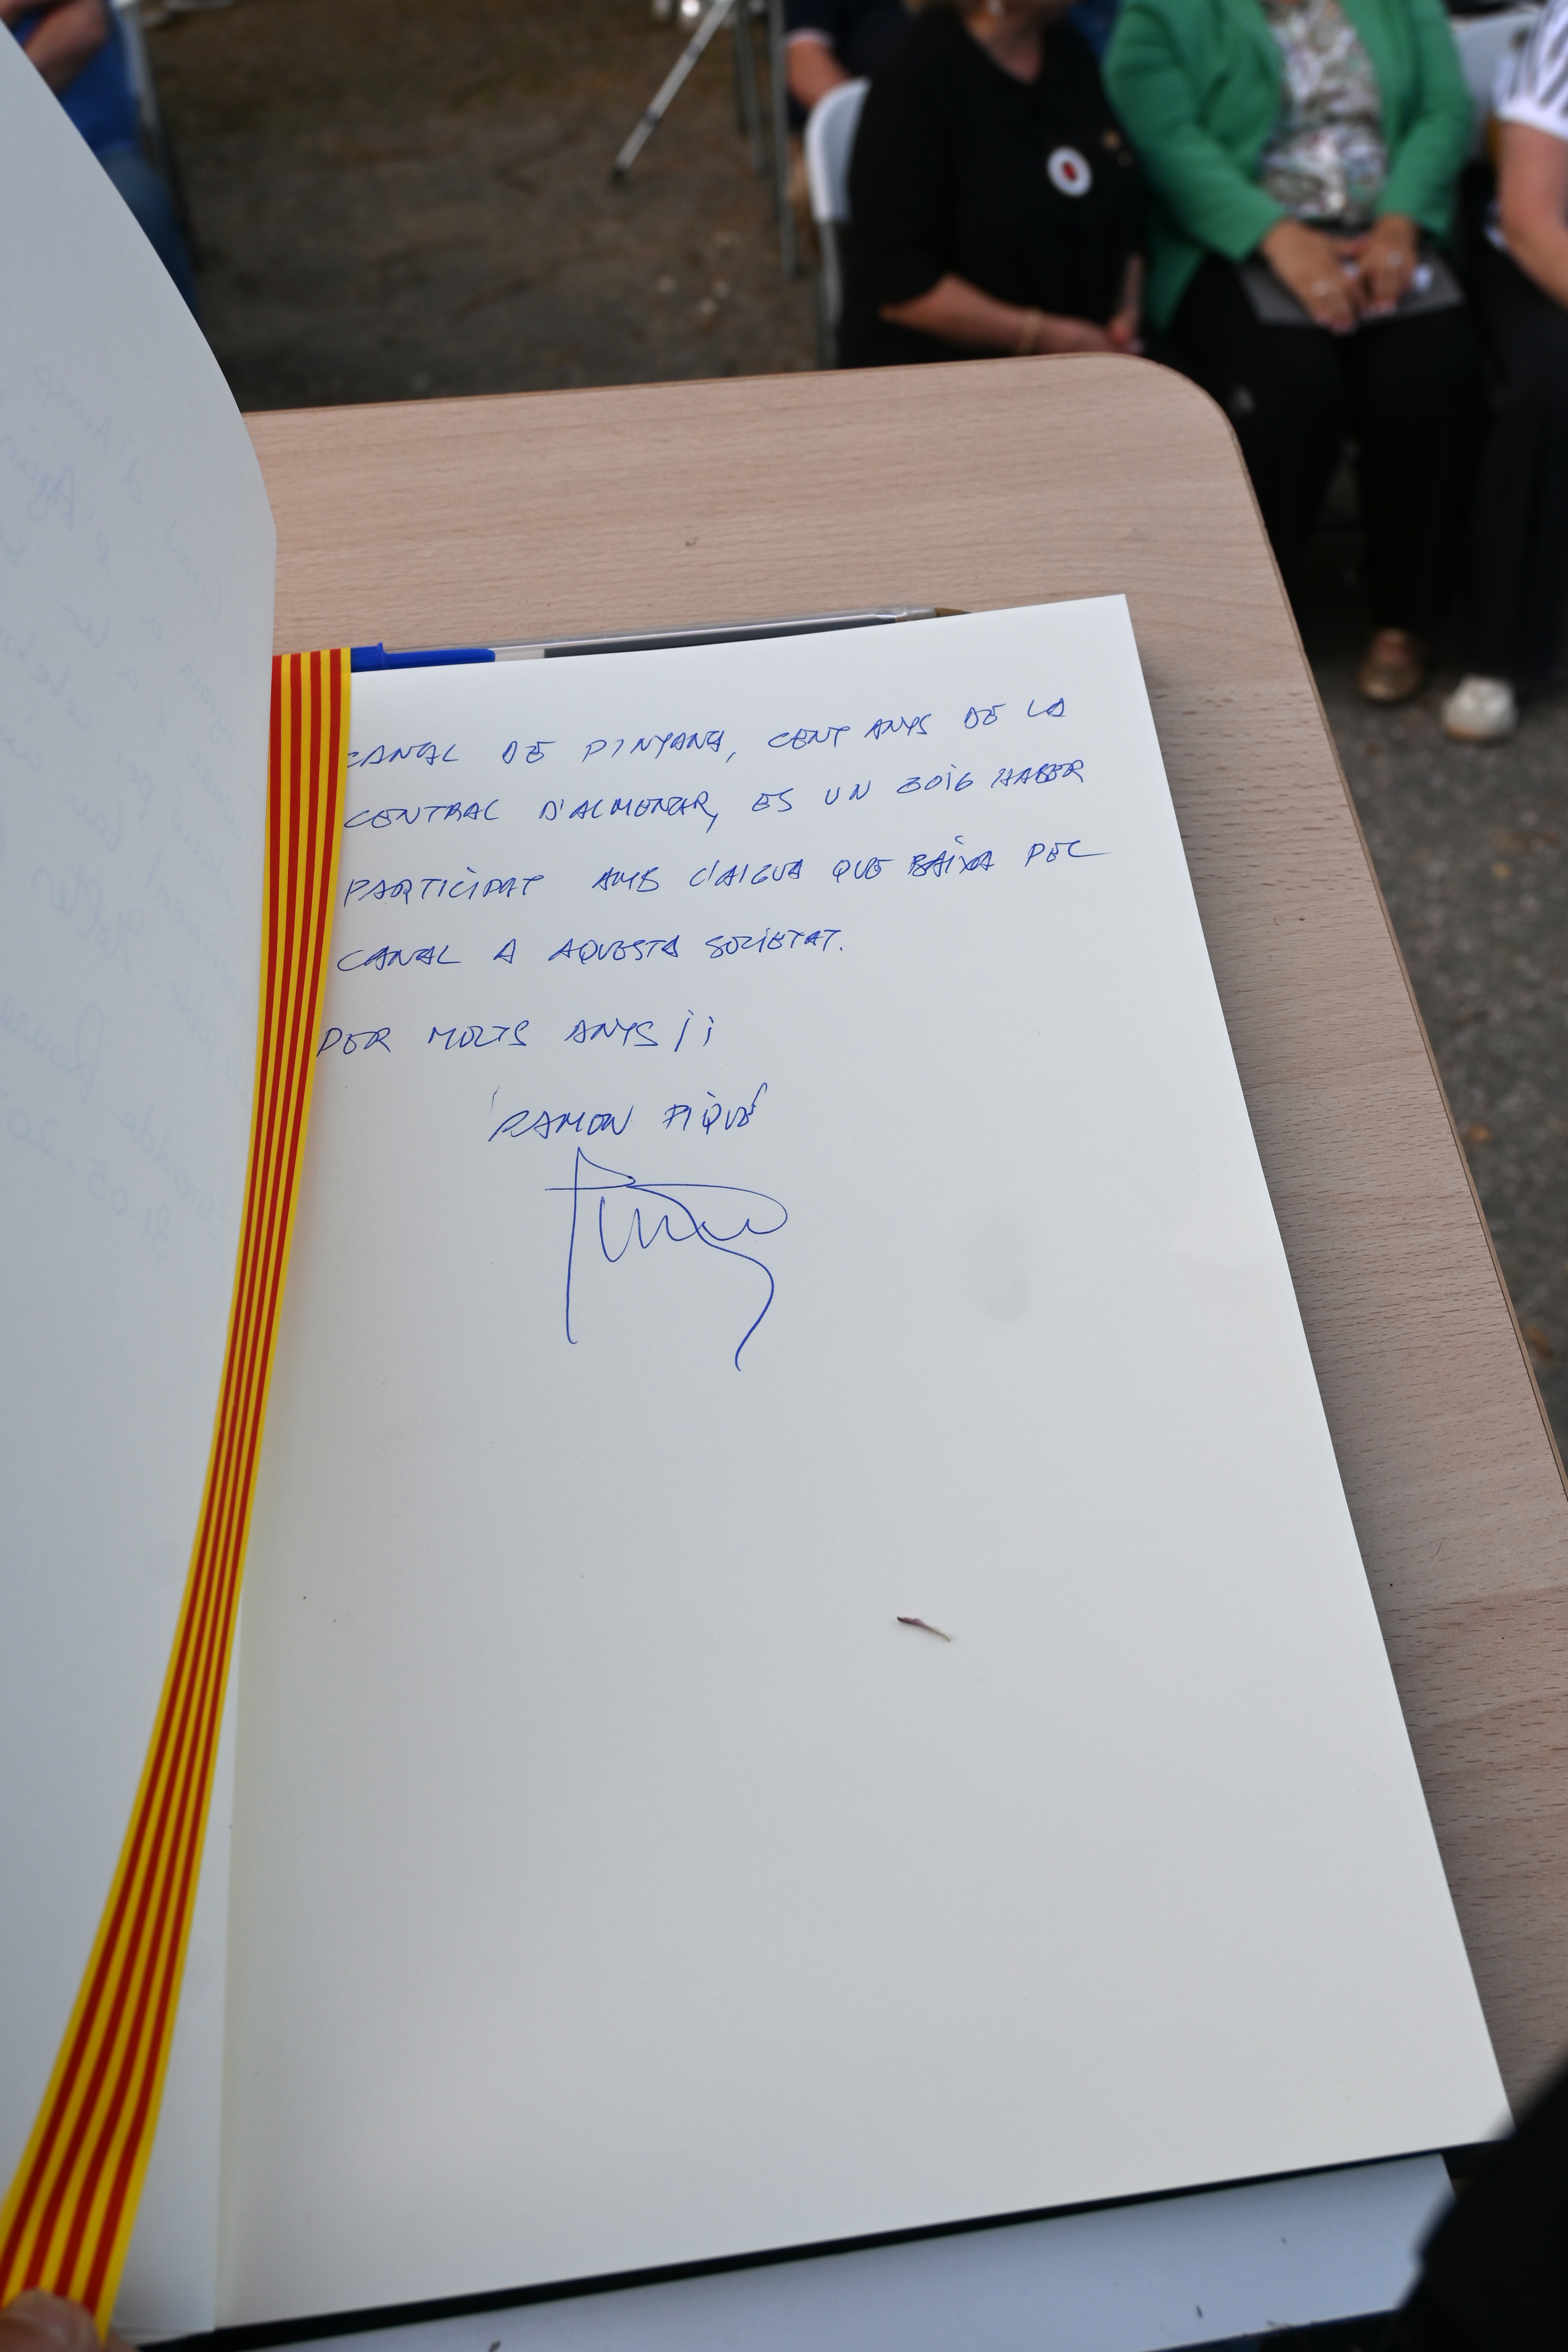 CANAL DE PINYANA, CENT ANYS DE LA
CENTRAL D'ALMENAR, ES UN GOIG HABER
PARTICIPAT AMB L'AIGUA QUE BAIXA PEL
CANAL A AQUESTA SOCIETAT.
PER MOLTS ANYS ¡¡
RAMON PIQUÉ